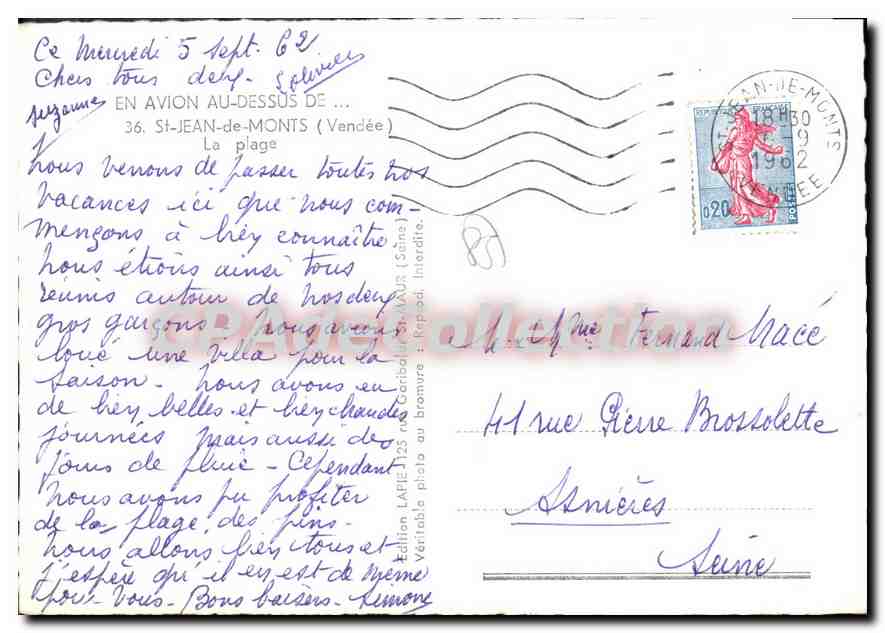 Ce Mercredi 5 Sept. 62
Chers tous deux -
Suzanne
Solivier
EN AVION AU-DESSUS DE ...
36. St-JEAN-de-MONTS (Vendée)
La plage
Nous venons de passer toutes nos
vacances ici que nous com-
mençons à bien connaître
Nous étions ainsi tous
réunis autour de nos deux
gros garçons - Nous avions
loué une villa pour la
saison - Nous avons eu
de bien belles et bien chaudes
journées mais aussi des
jours de pluie - Cependant
nous avons pu profiter
de la plage, des pins -
Nous allons bien tous et
j'espère qu'il en est de même
pour vous - Bons baisers - Simone
Edition LAPIE 125 rue Garibaldi St-MAUR (Seine)
Véritable photo au bromure : Reprod. Interdite.
85
ST-JEAN-DE-MONTS
18H30
-9
1962
VENDEE
0,20
POSTES
M. & Mme Fernand Macé
41 rue Pierre Brossolette
Asnières
Seine
CPAdecollection